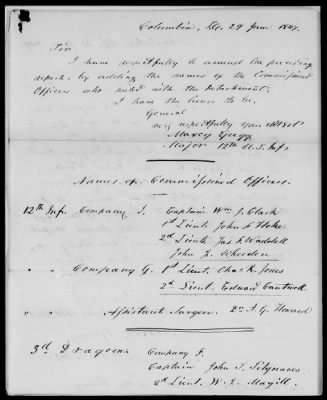 Columbia, So. 29 June 1847.
Sir
I have respectfully to amend the preceding
report, by adding the names of the Commissioned
Officers who sailed with the Detachment.
I have the honor to be,
General
very respectfully your obt svt
Maxcy Gregg
Major 12th U.S. Inf.
Names of Commissioned Officers.
12th Inf. Company I. Captain Wm J. Clark
1st Lieut. John F. Hoke
2d Lieuts. Jas F. Waddell
John
" " Company G. 1st Lieut. Chas R. Jones
2d Lieut. Edward Cantwell
" " Assistant Surgeon. Dr A. G. Howard
3d Dragoons Company F.
Captain John S. Sitgreaves
2d Lieut. W. J. Magill.